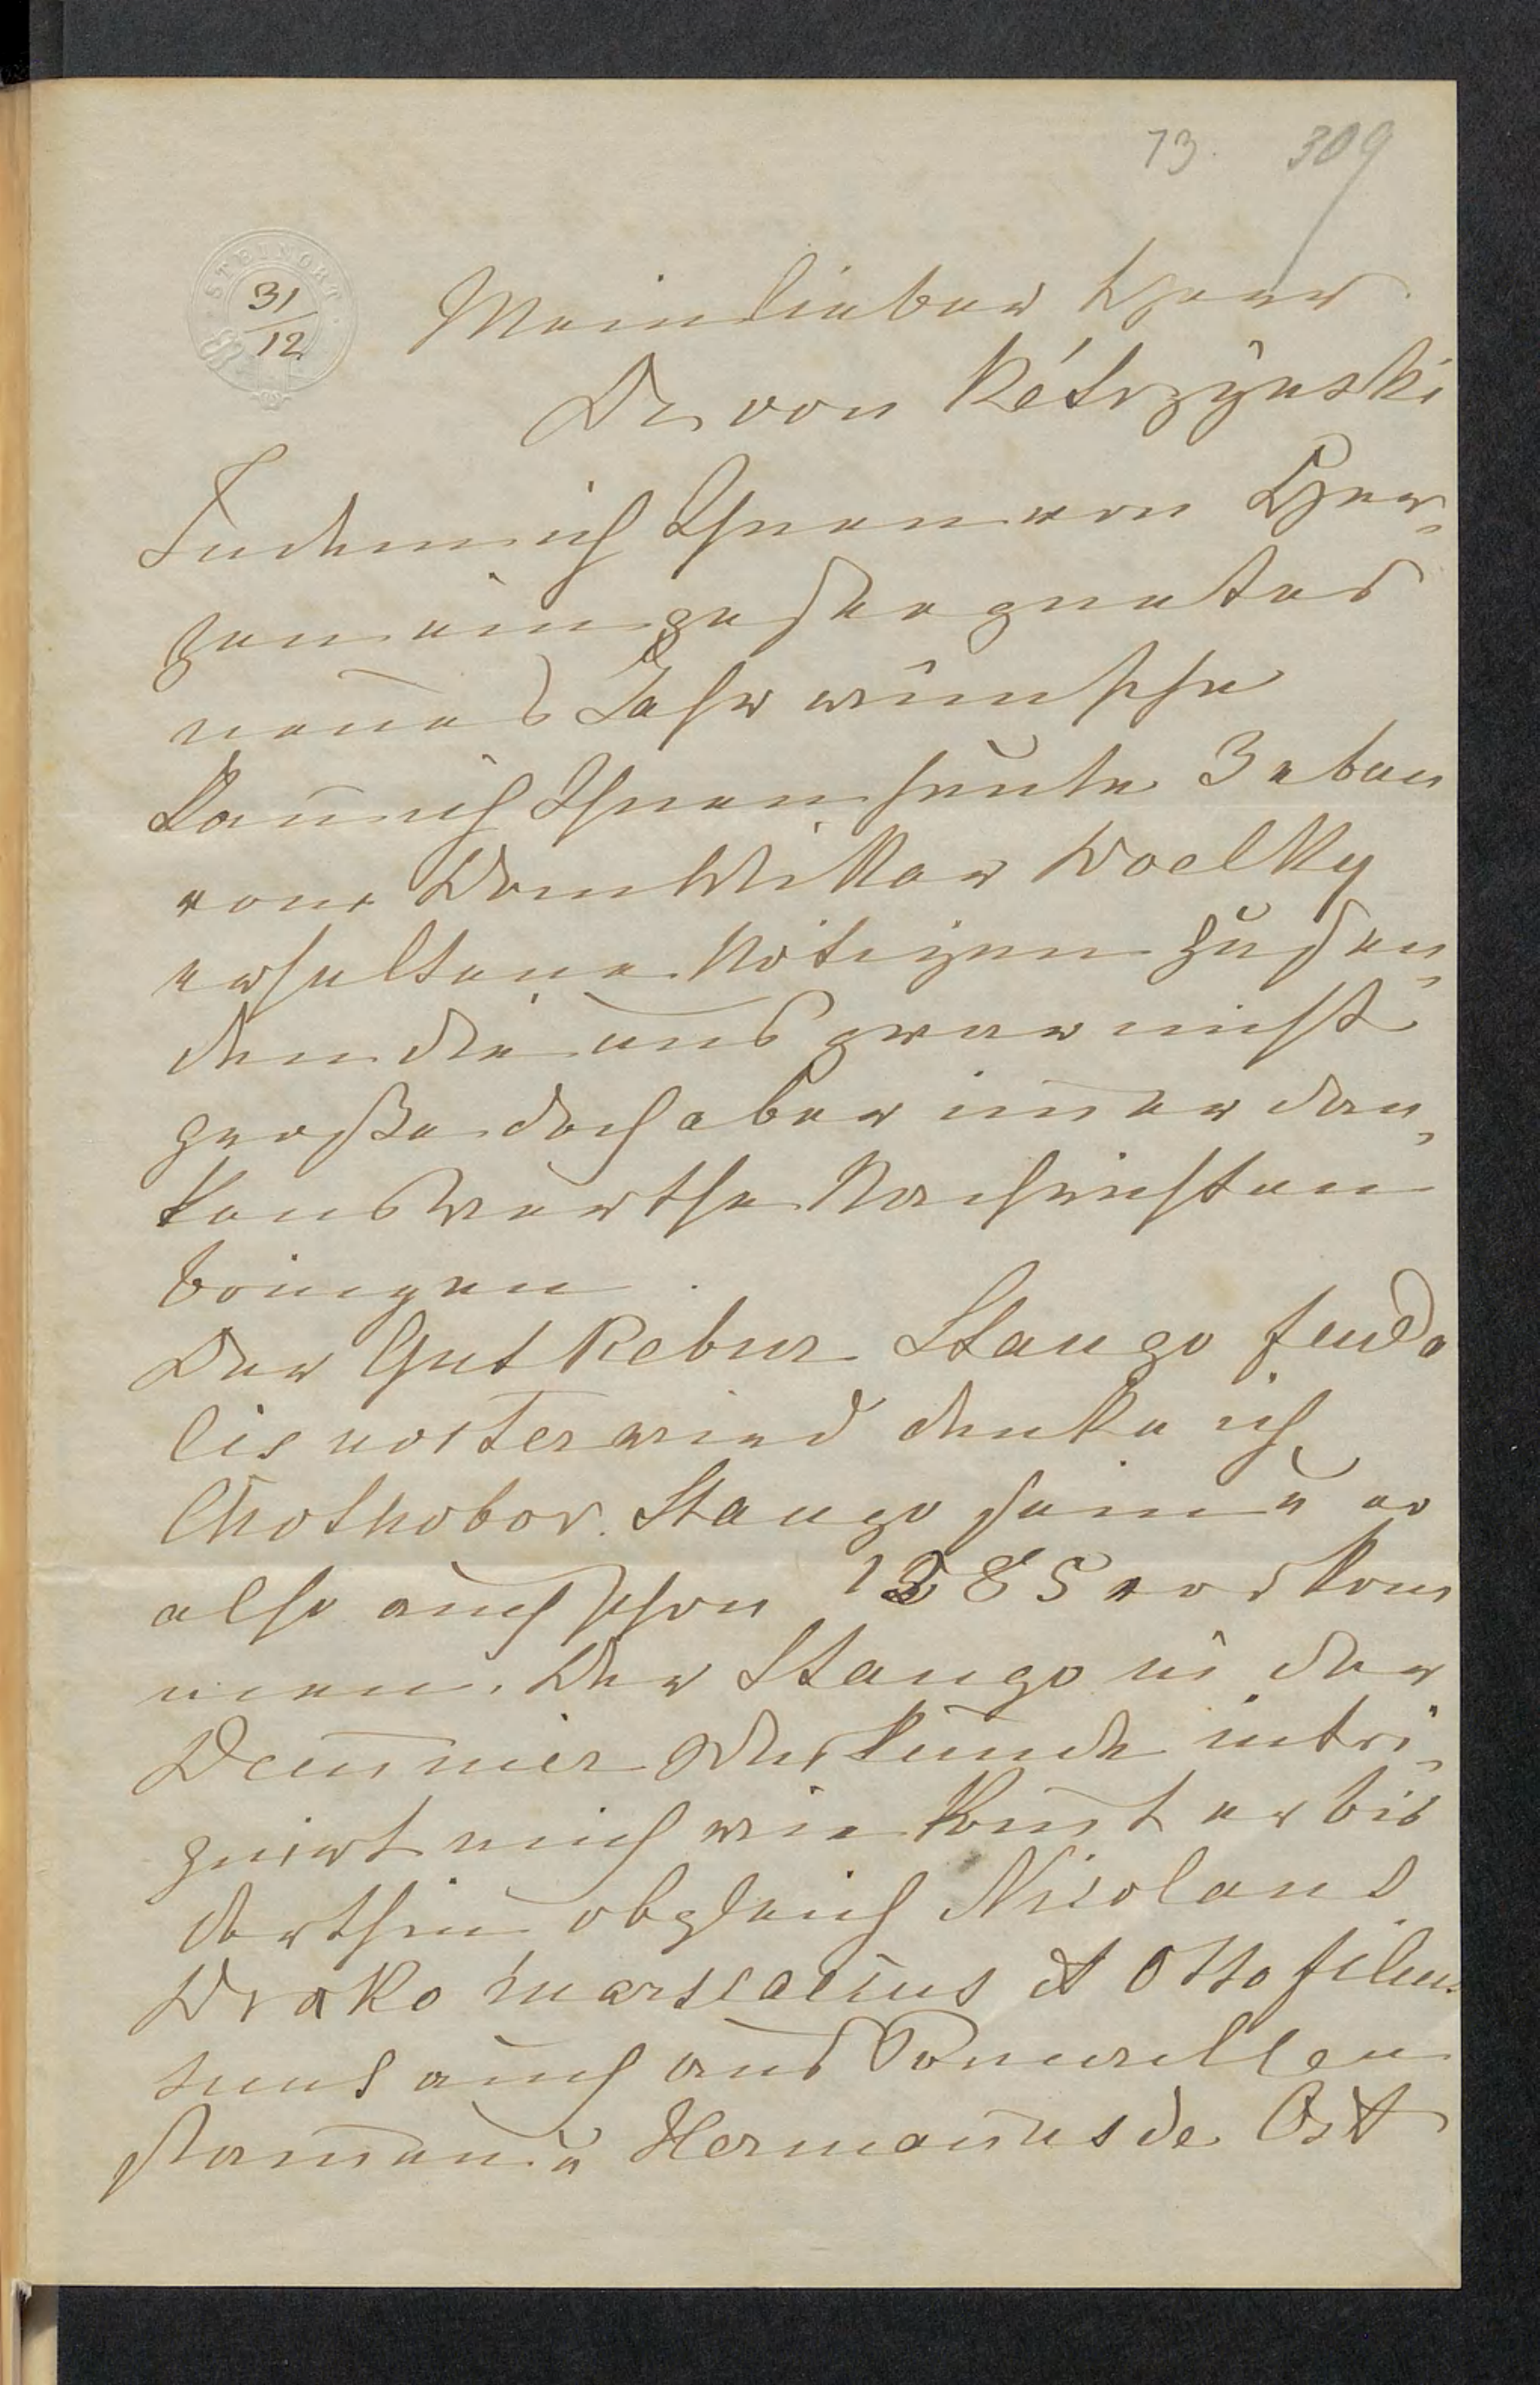 73. 309
STEINORT
31
12
Mein lieber Herr
Dr von Kétrzÿnski
Indem ich Ihnen von Her¬
zen ein gesegnetes
neues Jahr wünsche
kann ich Ihnen heute 3 eben
vom Dom Vikar Woelky
erhaltene Notizen zusen¬
den die uns zwar nicht
große doch aber im̄er dan¬
kenswerthe Nachrichten
bringen.
Der Gut Rebur Stango feuda
lis noster wird denke ich
Chothobor. Stango sein u er
also auch schon 1285 vorkom
men. Der Stango in der
Dem̄iner Urkunde intri¬
guirt mich wie kom̄t er bis
dorthin obgleich Nicolaus
Drako marscalcus et Otto filius
suus auch aus Pomesellen
stam̄en u Hermanus de Ost